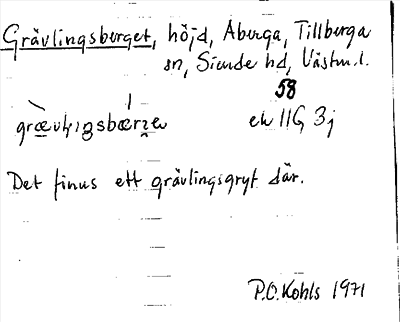 Grävlingsberget, höjd, Åberga, Tillberga
sn, Siende hd, Västm.l.
58
ek 11G 3j
Det finns ett grävlingsgryt där.
P.O. Kohls 1971